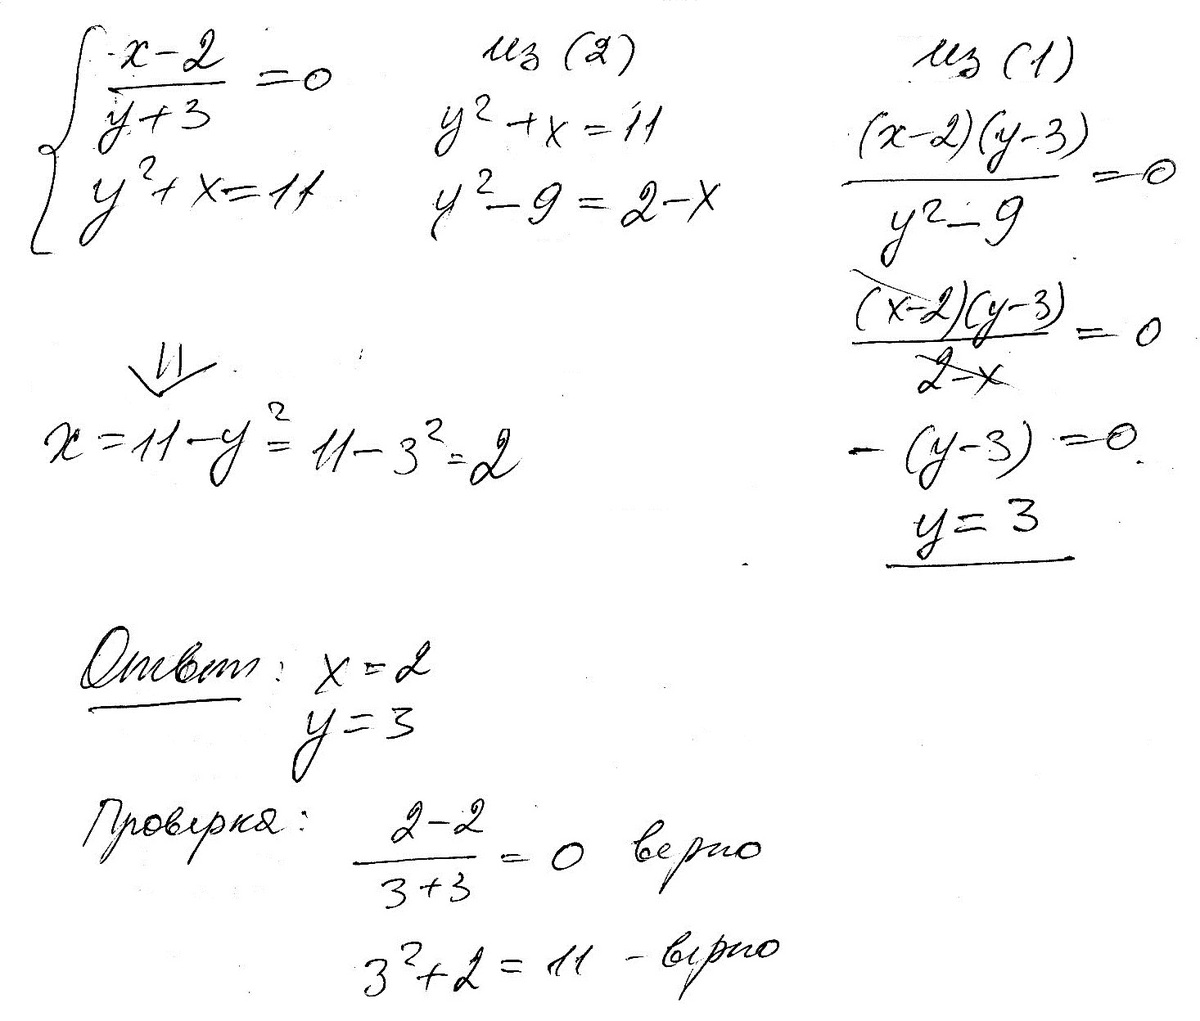 x-2
y+3 = 0
y²+x=11
из (2)
y²+x=11
y²-9=2-x
из (1)
(x-2)(y-3)
y²-9 = 0
(x-2)(y-3)
2-x = 0
-(y-3)=0
y=3
x=11-y²=11-3²=2
Ответ: x=2
y=3
Проверка: 2-2
3+3 = 0 верно
3²+2=11 - верно